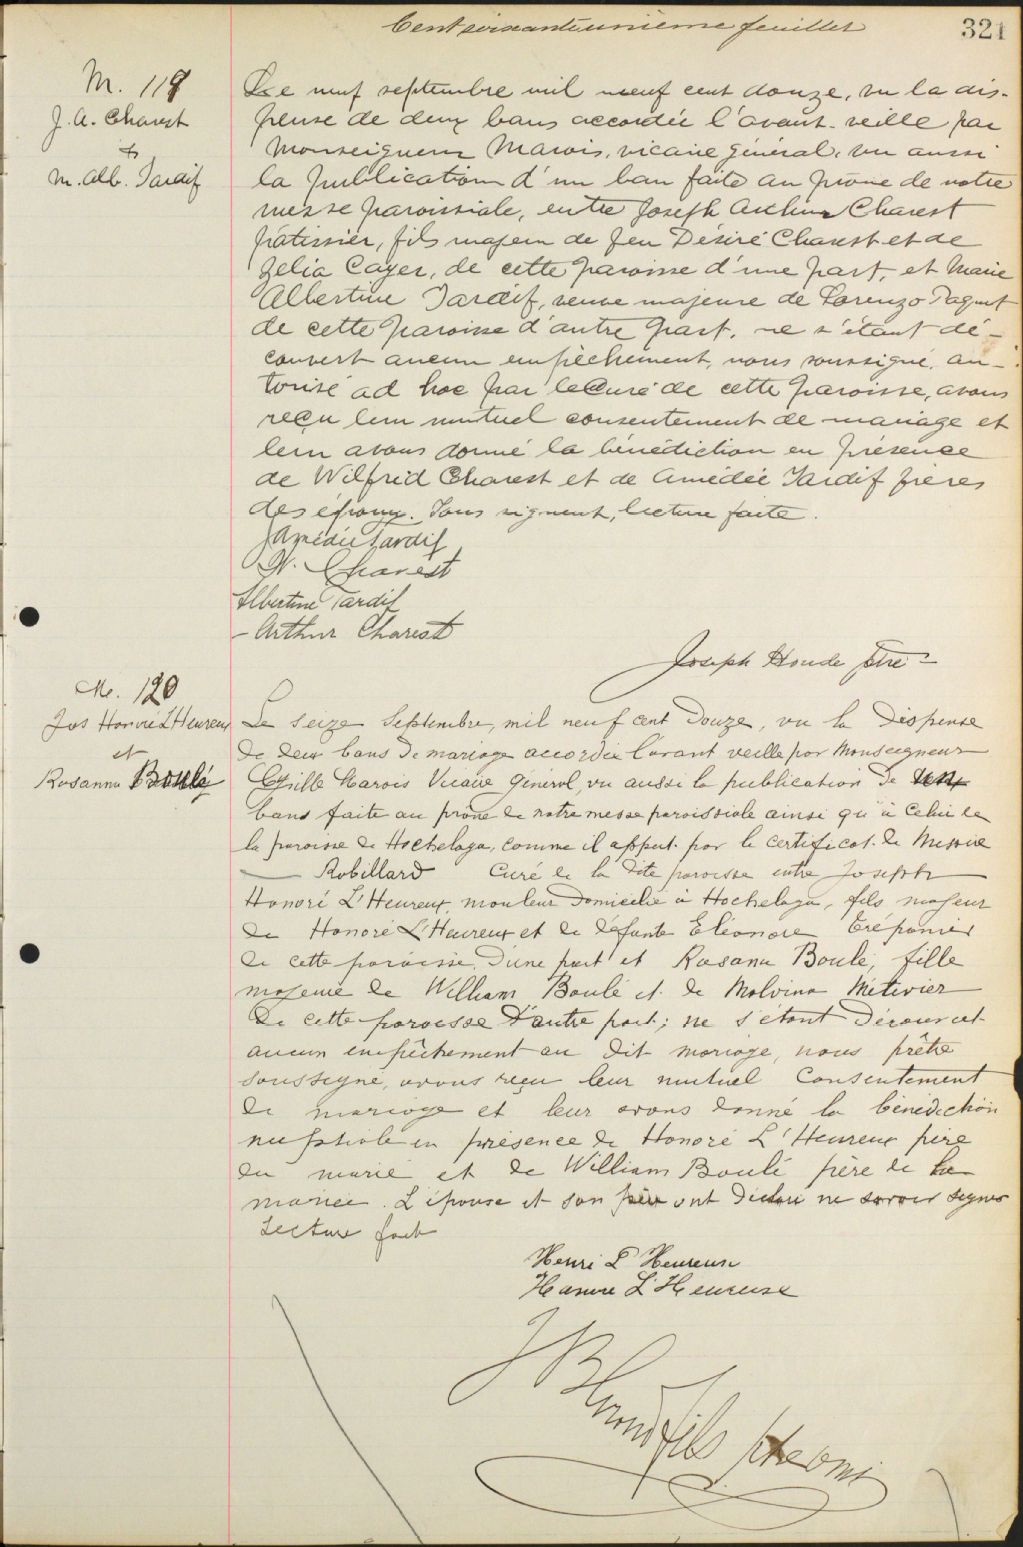 Cent soixante unième feuillet
321
M. 119
J. A. Charest
&
M. Alb. Tardif
Le neuf septembre mil neuf cent douze, vu la dis-
pense de deux bans accordée l'avant-veille par
Monseigneur Marois, vicaire général, vu aussi
la publication d'un ban faite au prône de notre
messe paroissiale, entre Joseph Arthur Charest
pâtissier, fils majeur de feu Désiré Charest et de
Zelia Cayer, de cette paroisse d'une part, et Marie
Albertine Tardif, veuve majeure de Lorenzo Paquet
de cette paroisse d'autre part, ne s'étant dé-
couvert aucun empêchement, nous soussigné, au-
torisé ad hoc par le Curé de cette paroisse, avons
reçu leur mutuel consentement de mariage et
leur avons donné la bénédiction en présence
de Wilfrid Charest et de Amédée Tardif frères
des époux. Tous signent, lecture faite.
Amédée Tardif
W. Charest
Albertine Tardif
Arthur Charest
Joseph Houde ptre
M. 120
Jos Honoré L'Heureux
et
Rosanna Boulé
Le seize Septembre, mil neuf cent Douze, vu la Dispense
de deux bans de mariage accordée l'avant veille par Monseigneur
Cyrille Marois Vicaire Général, vu aussi la publication de
bans faite au prône de notre messe paroissiale ainsi qu'à celui de
la paroisse de Hochelaga, comme il appert par le certificat de Messire
Robillard Curé de la dite paroisse entre Joseph
Honoré L'Heureux, mouleur Domicilié à Hochelaga, fils majeur
de Honoré L'Heureux et de défunte Eléonore Trépanier
de cette paroisse d'une part et Rosana Boulé, fille
majeure de William Boulé et de Malvina Métivier
de cette paroisse d'autre part; ne s'étant Découvert
aucun empêchement au dit mariage, nous prêtre
soussigné, avons reçu leur mutuel Consentement
de mariage et leur avons donné la bénédiction
nuptiale en présence de Honoré L'Heureux père
du marié et de William Boulé père de la
mariée. L'épouse et son père ont déclaré ne savoir signer
Lecture faite
Henri L'Heureux
Honoré L'Heureux
fils ptre